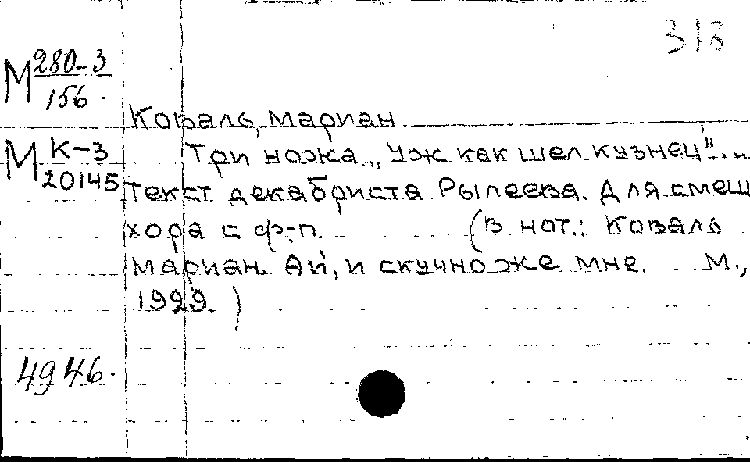 318
М 280-3/156.
Коваль, Мариан
М К-3/20145
Три ножа „Уж как шел кузнец"...
Текст декабриста Рылеева. Для смеш
хора с ф-п. (В нот.: Коваль
Мариан. Ай, и скучно же мне. М.,
1929.)
4946.